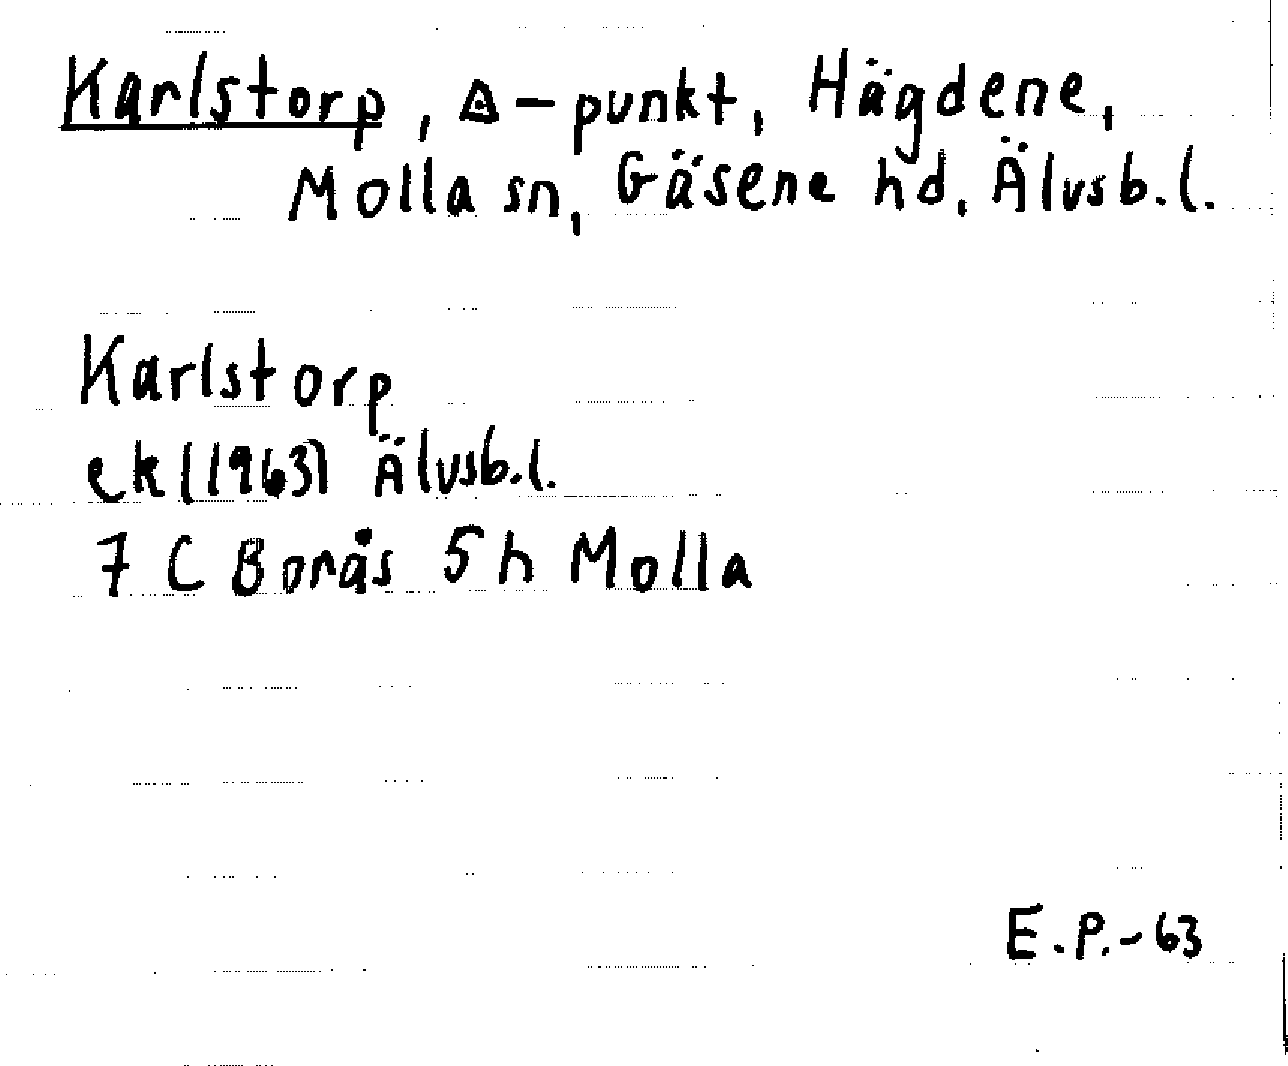 Karlstorp, △-punkt, Hägdene,
Molla sn, Gäsene hd, Älvsb.l.
Karlstorp
ek (1963) Älvsb.l.
7 C Borås 5 h Molla
E.P.-63